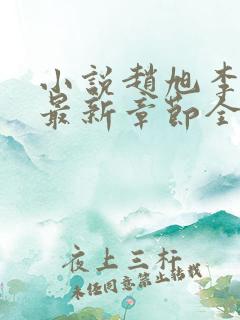 小説趙旭李
最新章節全
夜上三杆
未经同意禁止转载